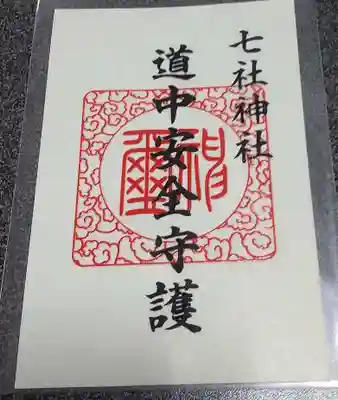 七社神社
道中安全守護
神璽